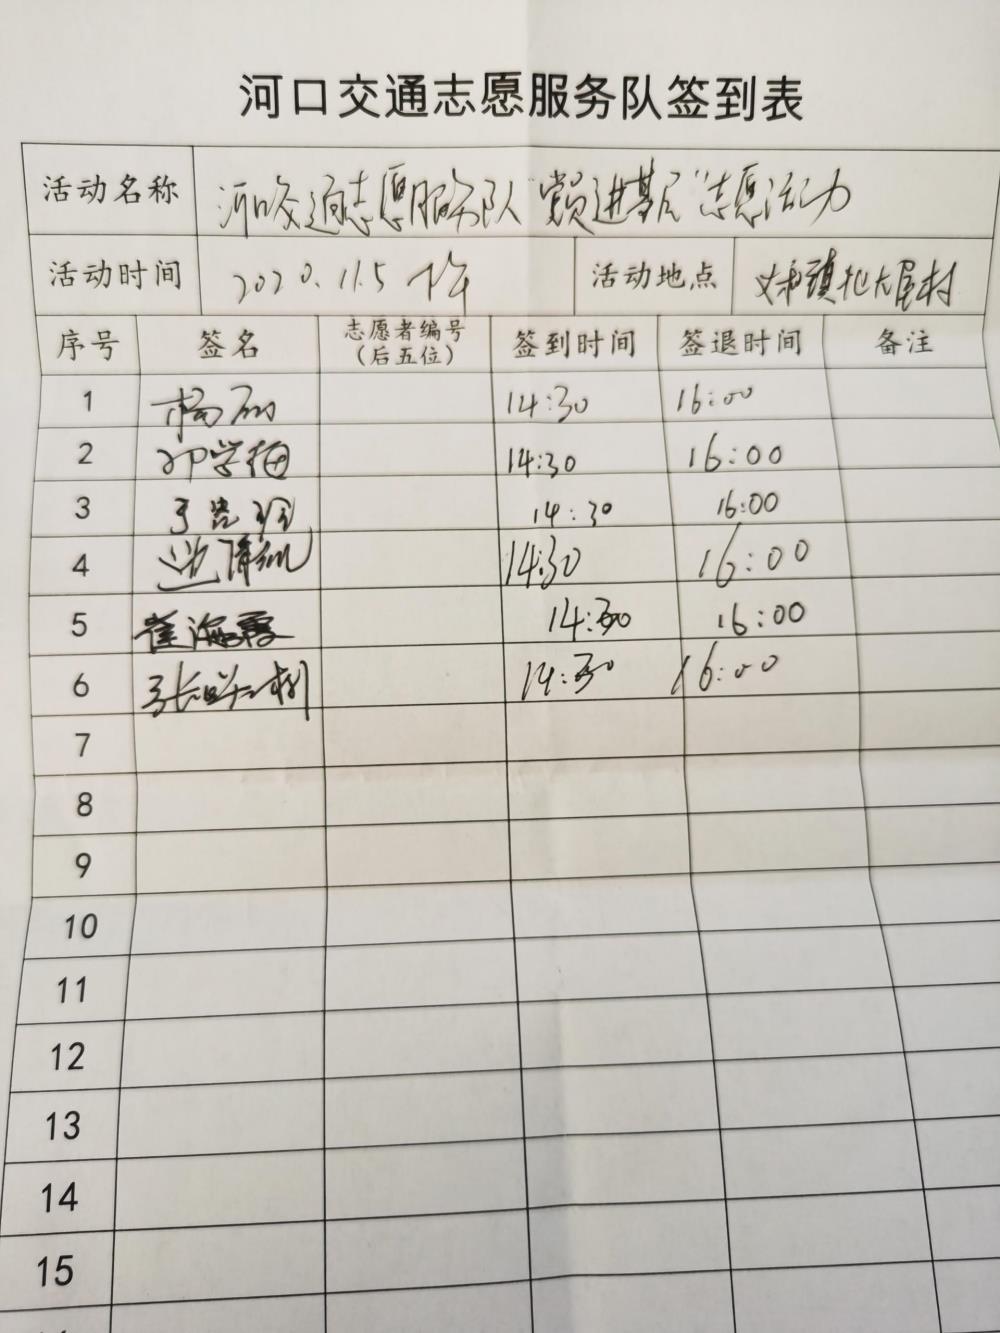 河口交通志愿服务队签到表
活动名称 河口交通志愿服务队"党员进基层"志愿活动
活动时间 2020.11.5 下午 活动地点
序号 签名 志愿者编号（后五位） 签到时间 签退时间 备注
1 杨 14:30 16:00
2 邓学梅 14:30 16:00
3 14:30 16:00
4 边 14:30 16:00
5 崔海霞 14:30 16:00
6 张 14:30 16:00
7
8
9
10
11
12
13
14
15